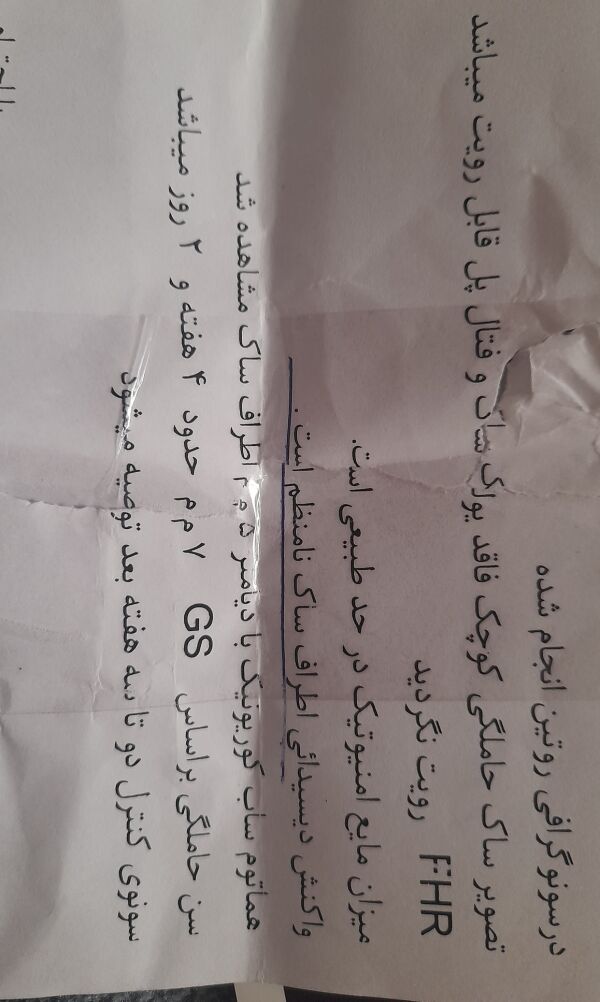 درسونوگرافی روتین انجام شده
تصویر ساک حاملگی کوچک فاقد یولک ساک و فتال پل قابل رویت میباشد
FHR رویت نگردید
میزان مایع امنیوتیک در حد طبیعی است.
واکنش دیسیدائی اطراف ساک نامنظم است.
هماتوم ساب کوریونیک با دیامتر ۵ م م اطراف ساک مشاهده شد
سن حاملگی براساس GS ۷ م م حدود ۴ هفته و ۲ روز میباشد
سونوی کنترل دو تا سه هفته بعد توصیه میشود